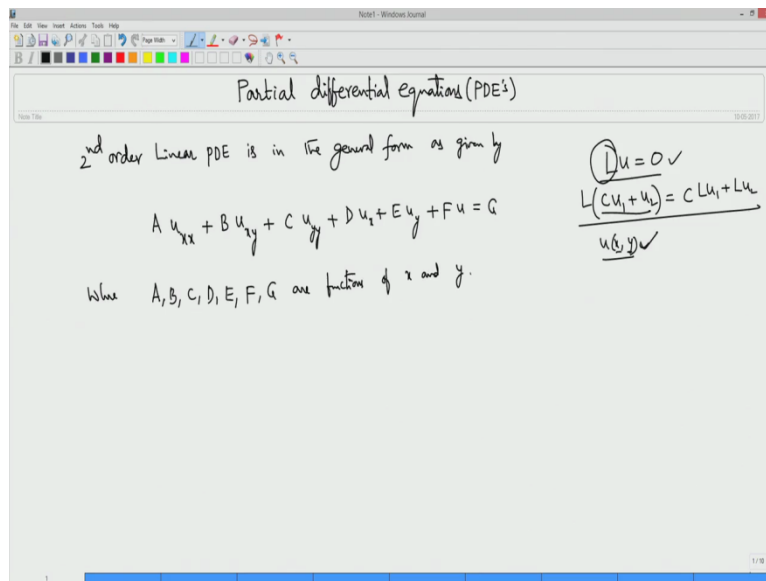 Note1 - Windows Journal
File Edit View Insert Actions Tools Help
Page Width
B I
Partial differential equations (PDE's)
Note Title
10-05-2017
2nd order Linear PDE is in the general form as given by
A u_xx + B u_xy + C u_yy + D u_x + E u_y + F u = G
Where A, B, C, D, E, F, G are functions of x and y.
Lu = 0 ✓
L(cu₁ + u₂) = C Lu₁ + Lu₂
u(x, y) ✓
1/10
1